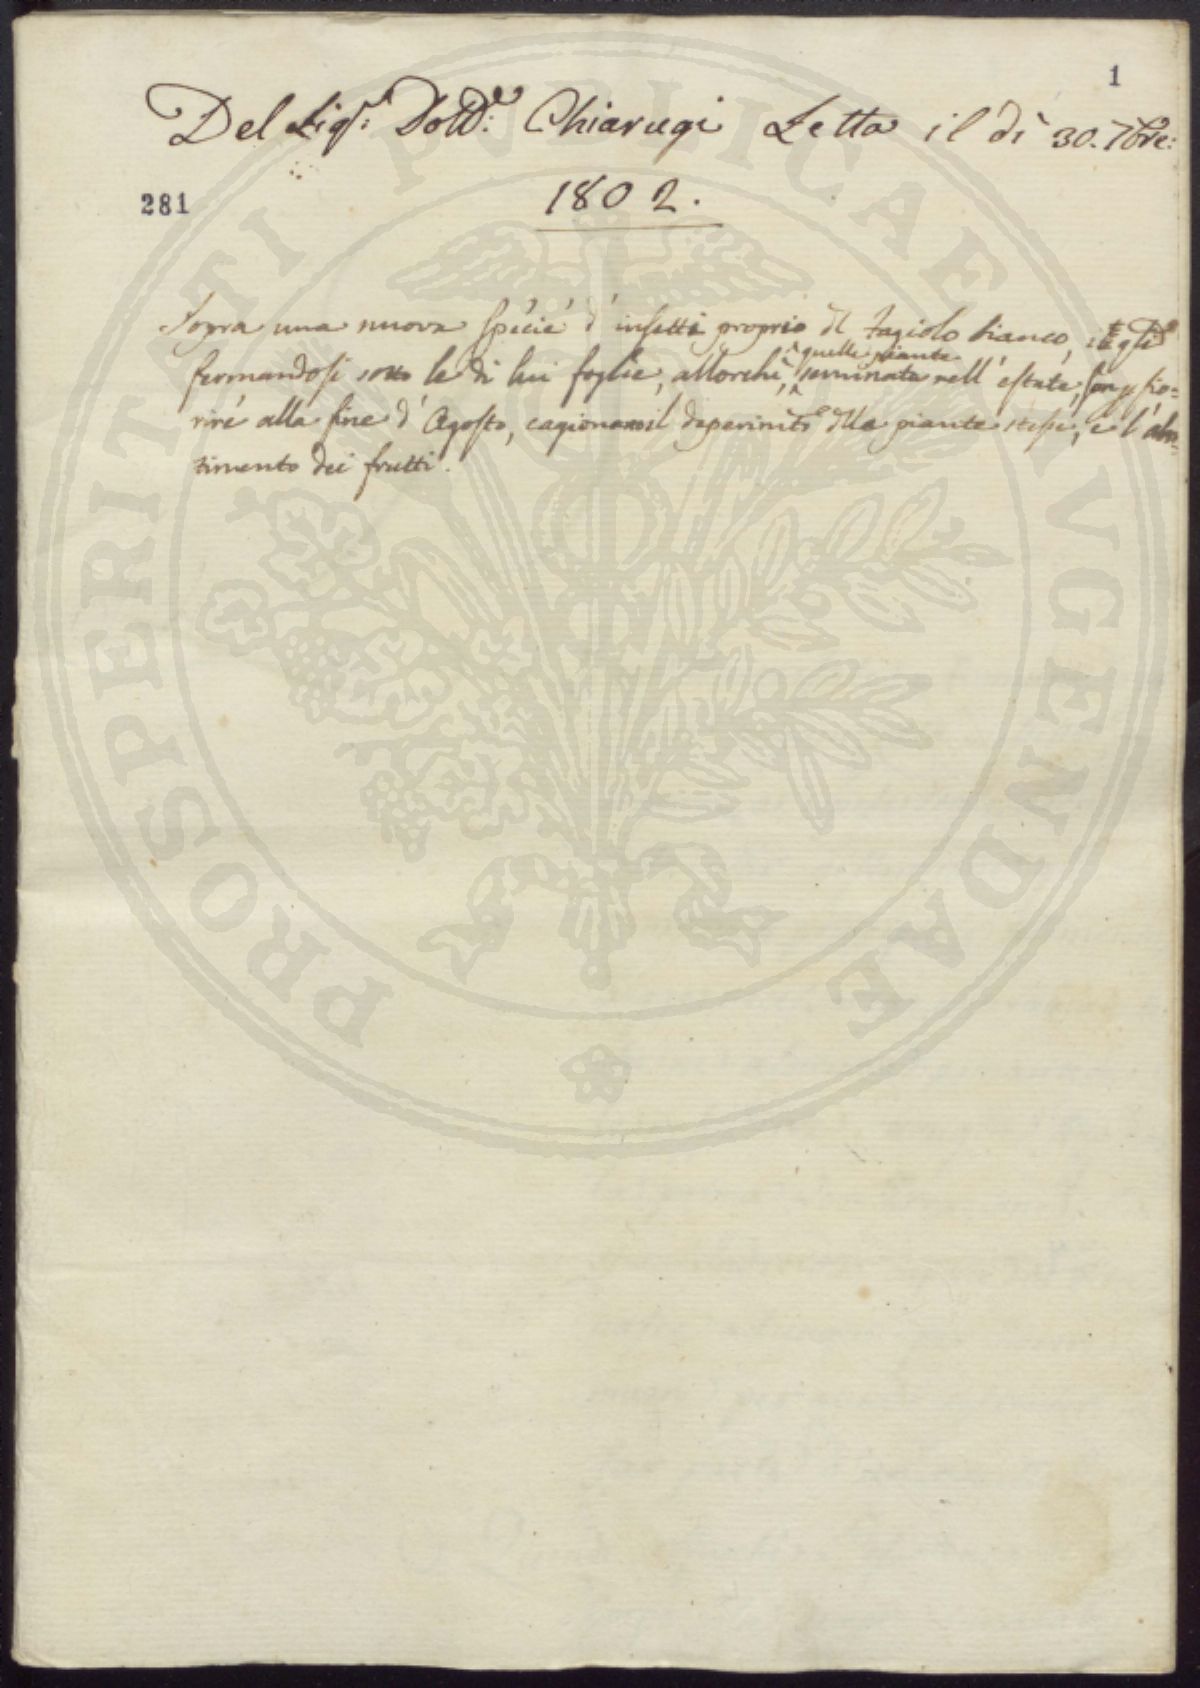 1
Del Sigr: Dottre: Chiarugi Letta il dì 30. 7bre:
281
1802.
Sopra una nuova specie d' insetti proprio del Fagiolo bianco,
quelle piante
fermandosi sotto le di lui foglie, allorchè, seminate nell' estate, son p fio=
rire alla fine d' Agosto, cagionano il deperimto della piante stesse, e l' abor=
timento dei frutti.
PROSPERITATI PVBLICAE AVGENDAE